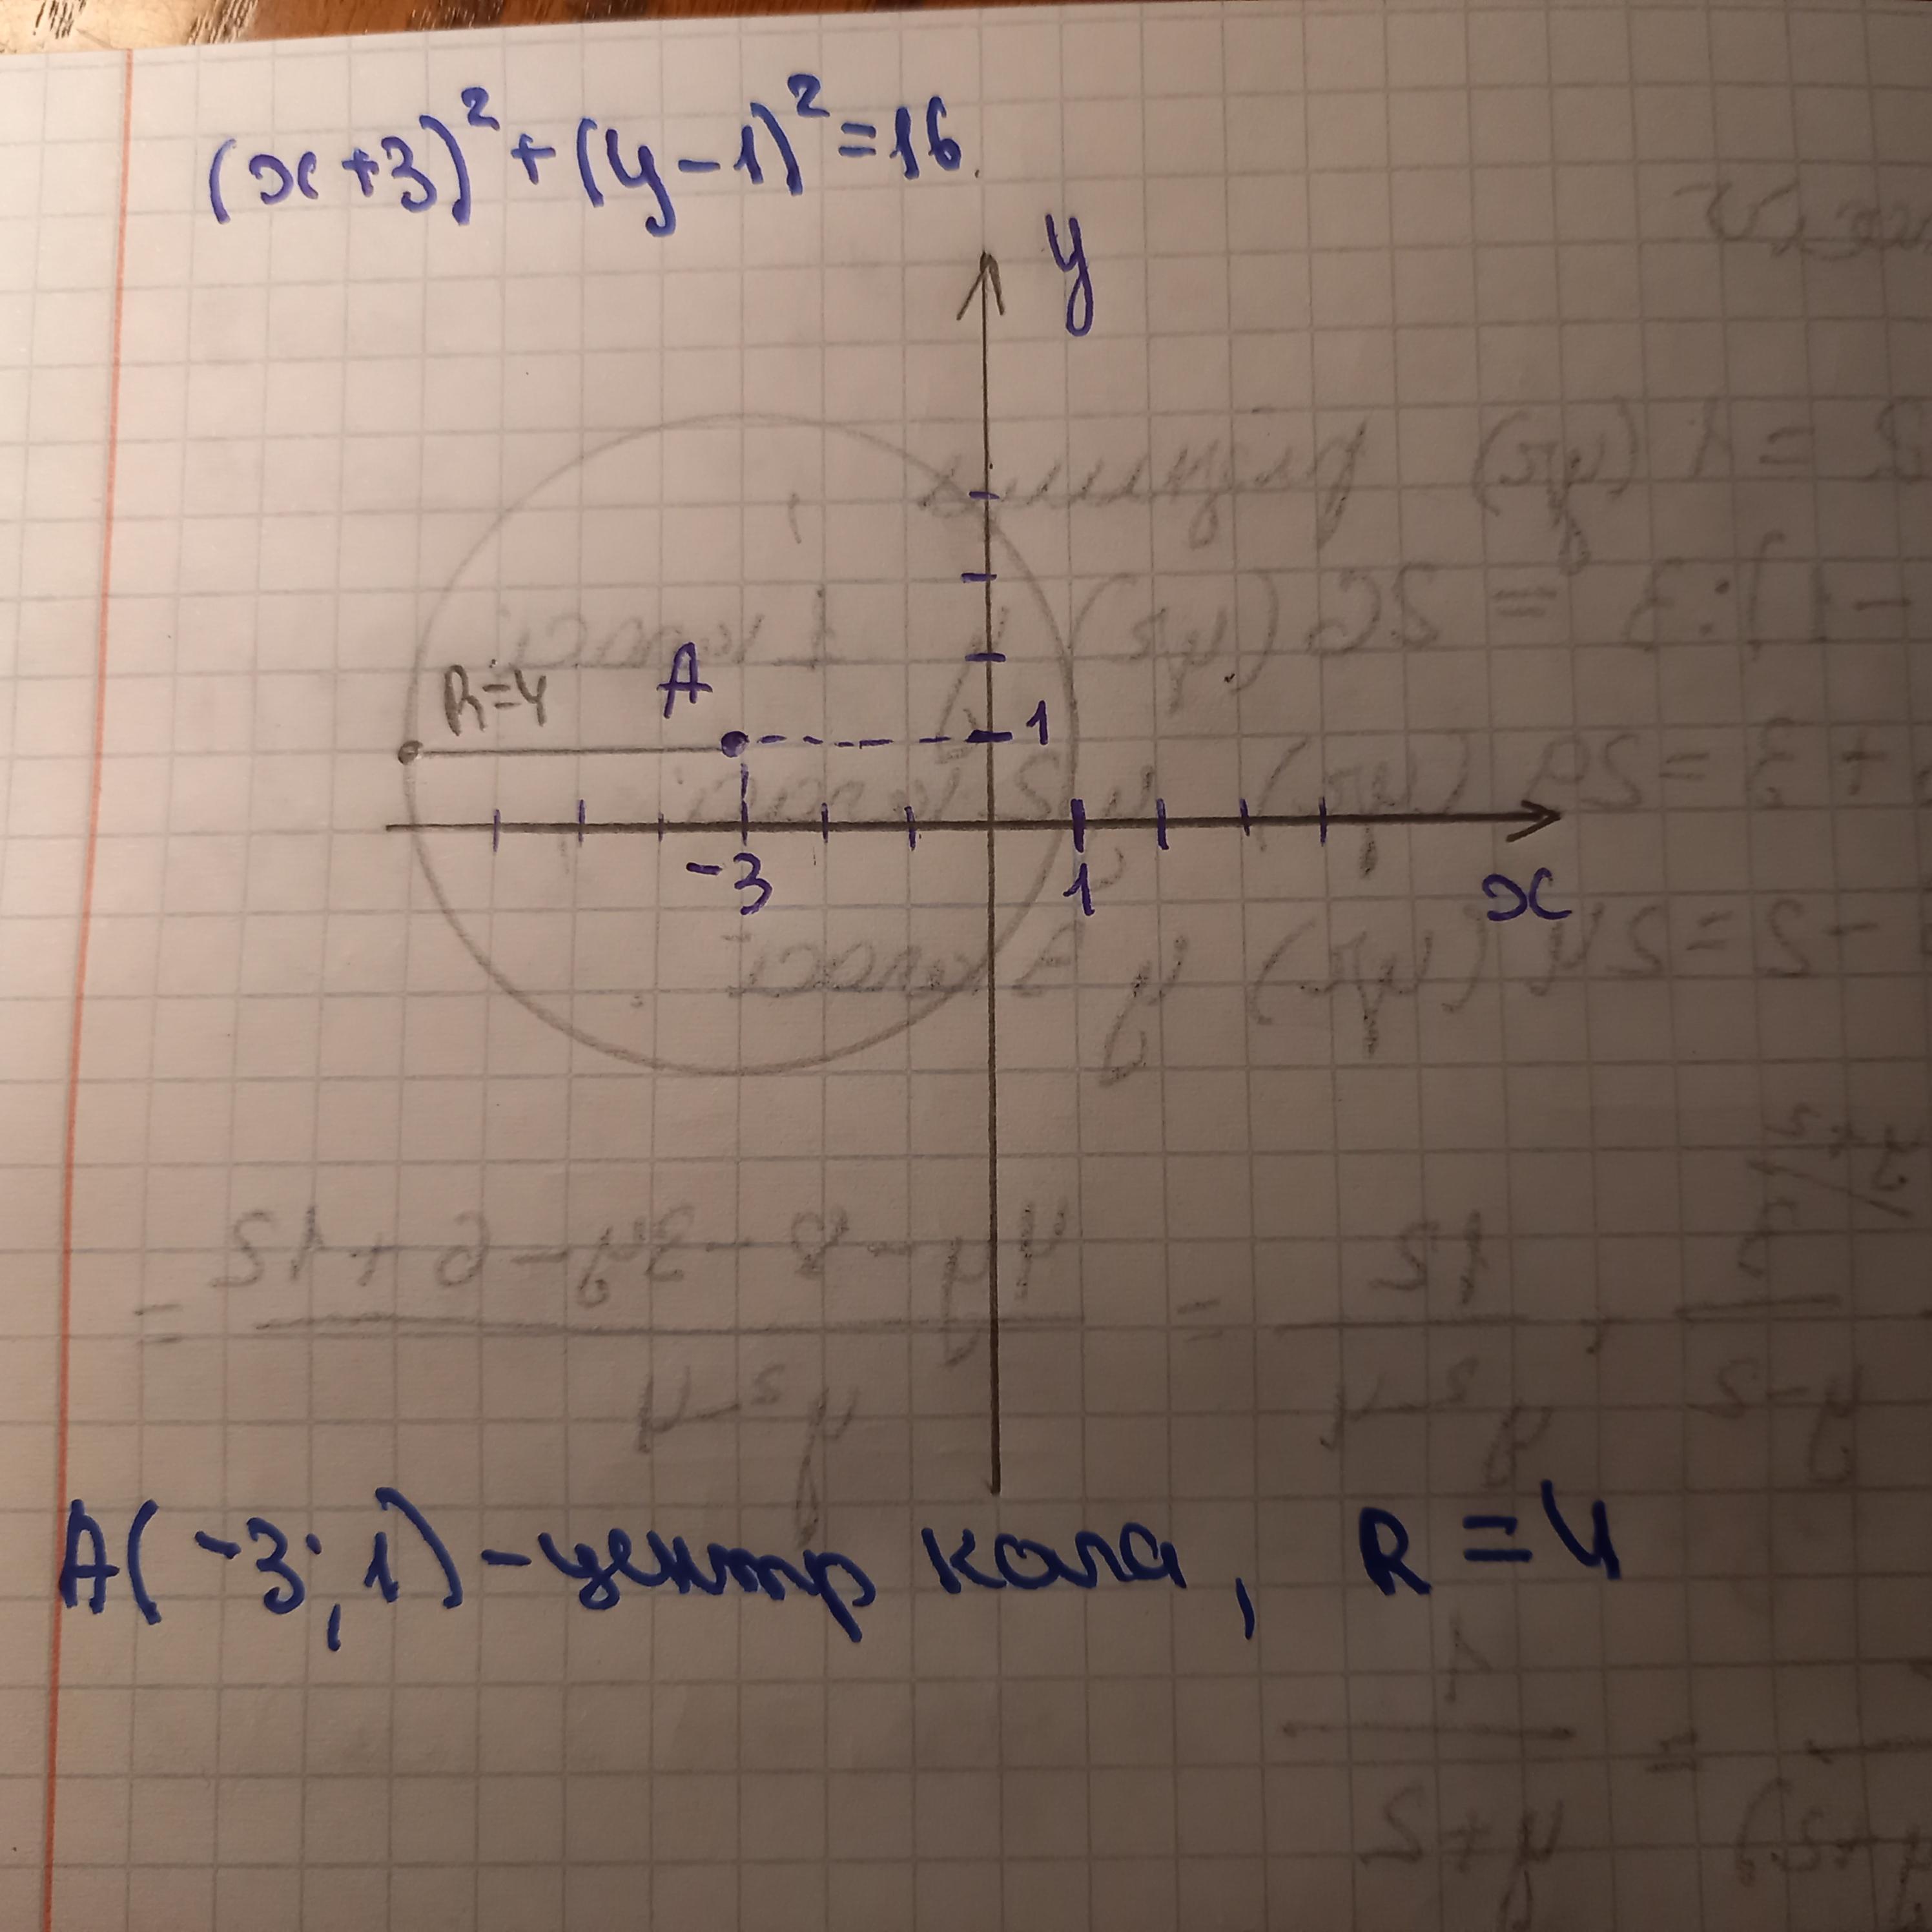 (x+3)²+(y-1)²=16
y
R=4 A
1
-3 1 x
A(-3; 1) - центр кола, R = 4